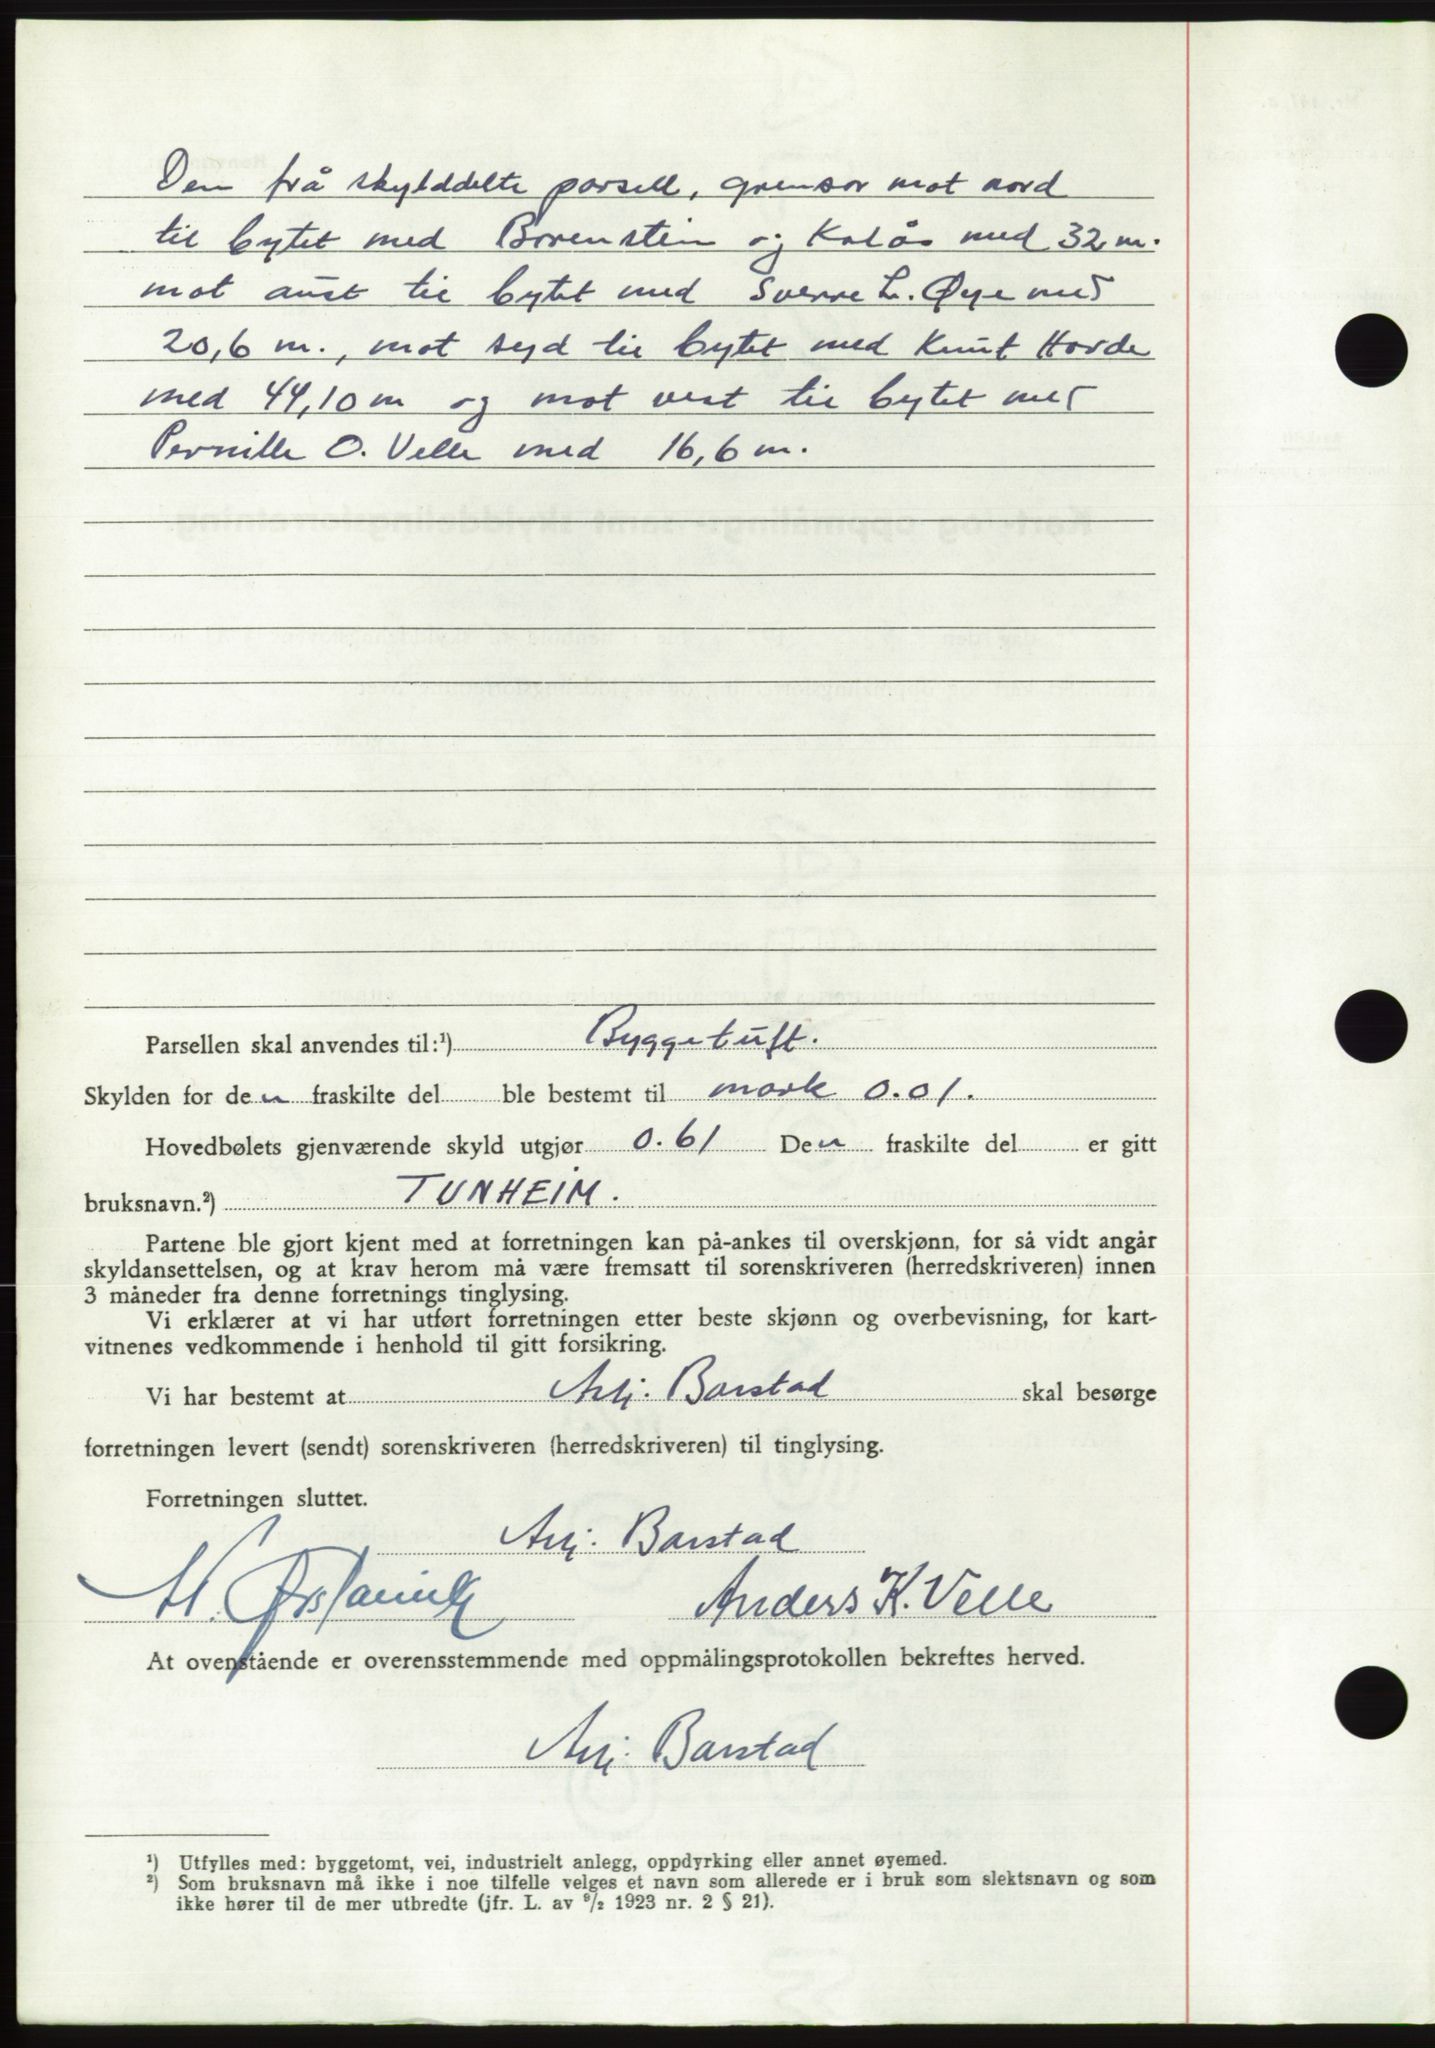 Den frå skylddelte parsell, grensar mot nord
til bytet med Borenstein og Kalås med 32 m.
mot aust til bytet med Sverre L. Øye med
20,6 m., mot syd til bytet med Knut Hovde
med 44,10 m og mot vest til bytet med
Pernille O. Velle med 16,6 m.
Parsellen skal anvendes til:¹) Byggetuft.
Skylden for den fraskilte del ble bestemt til mark 0.01.
Hovedbølets gjenværende skyld utgjør 0.61 Den fraskilte del er gitt
bruksnavn.²) TUNHEIM.
Partene ble gjort kjent med at forretningen kan på-ankes til overskjønn, for så vidt angår
skyldansettelsen, og at krav herom må være fremsatt til sorenskriveren (herredskriveren) innen
3 måneder fra denne forretnings tinglysing.
Vi erklærer at vi har utført forretningen etter beste skjønn og overbevisning, for kart-
vitnenes vedkommende i henhold til gitt forsikring.
Vi har bestemt at Arlj. Barstad skal besørge
forretningen levert (sendt) sorenskriveren (herredskriveren) til tinglysing.
Forretningen sluttet.
Arlj. Barstad
Anders K. Velle
At ovenstående er overensstemmende med oppmålingsprotokollen bekreftes herved.
Arlj. Barstad
¹) Utfylles med: byggetomt, vei, industrielt anlegg, oppdyrking eller annet øyemed.
²) Som bruksnavn må ikke i noe tilfelle velges et navn som allerede er i bruk som slektsnavn og som
ikke hører til de mer utbredte (jfr. L. av ⁹/₂ 1923 nr. 2 § 21).